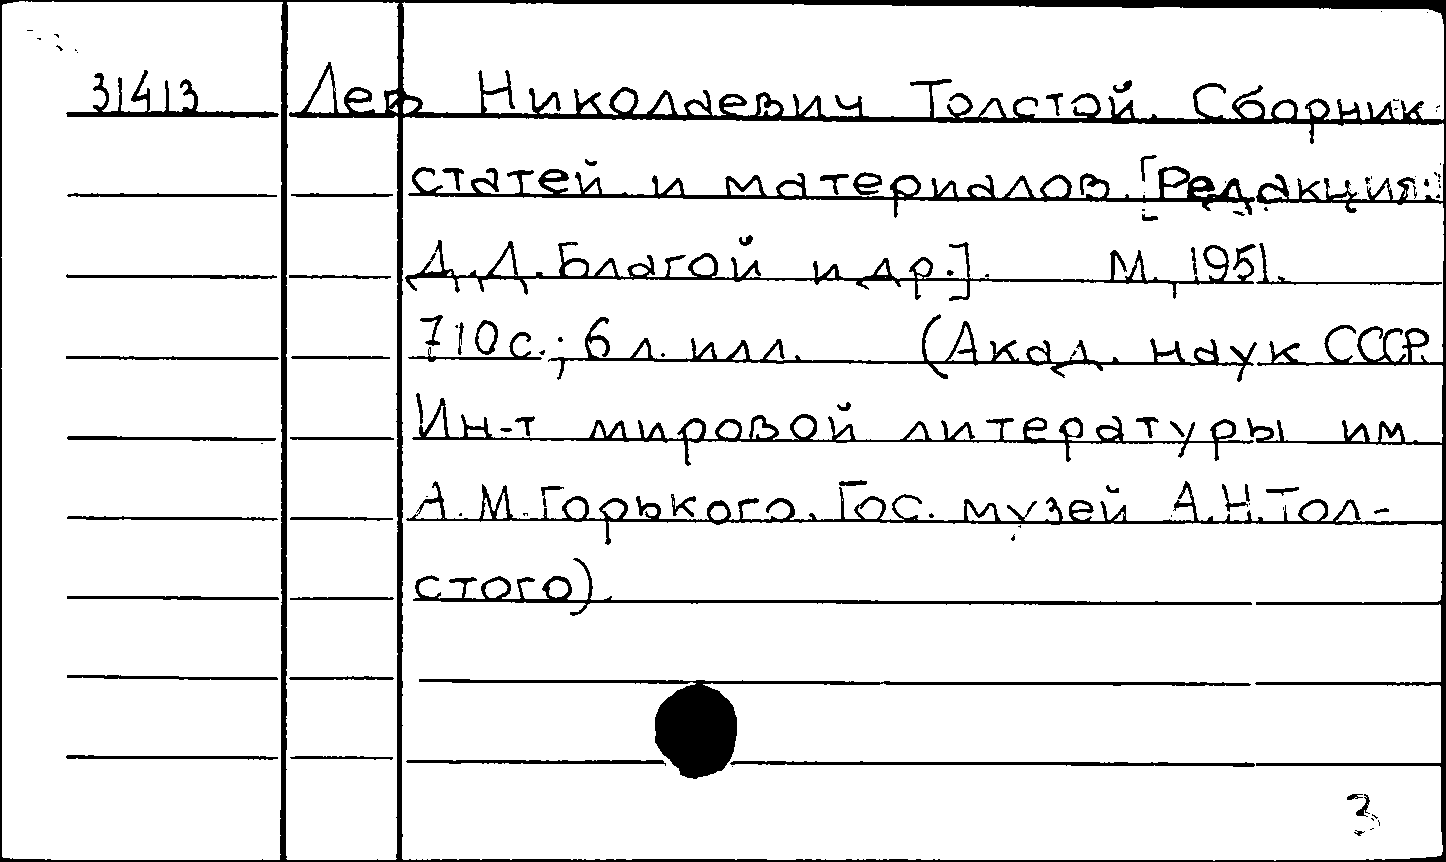 31413 Лев Николаевич Толстой. Сборник
статей и материалов. [Редакция:
Д.Д. Благой и др.]. М., 1951.
710 с.; 6 л. илл. (Акад. наук СССР.
Ин-т мировой литературы им.
А.М. Горького. Гос. музей А.Н. Тол-
стого).
3